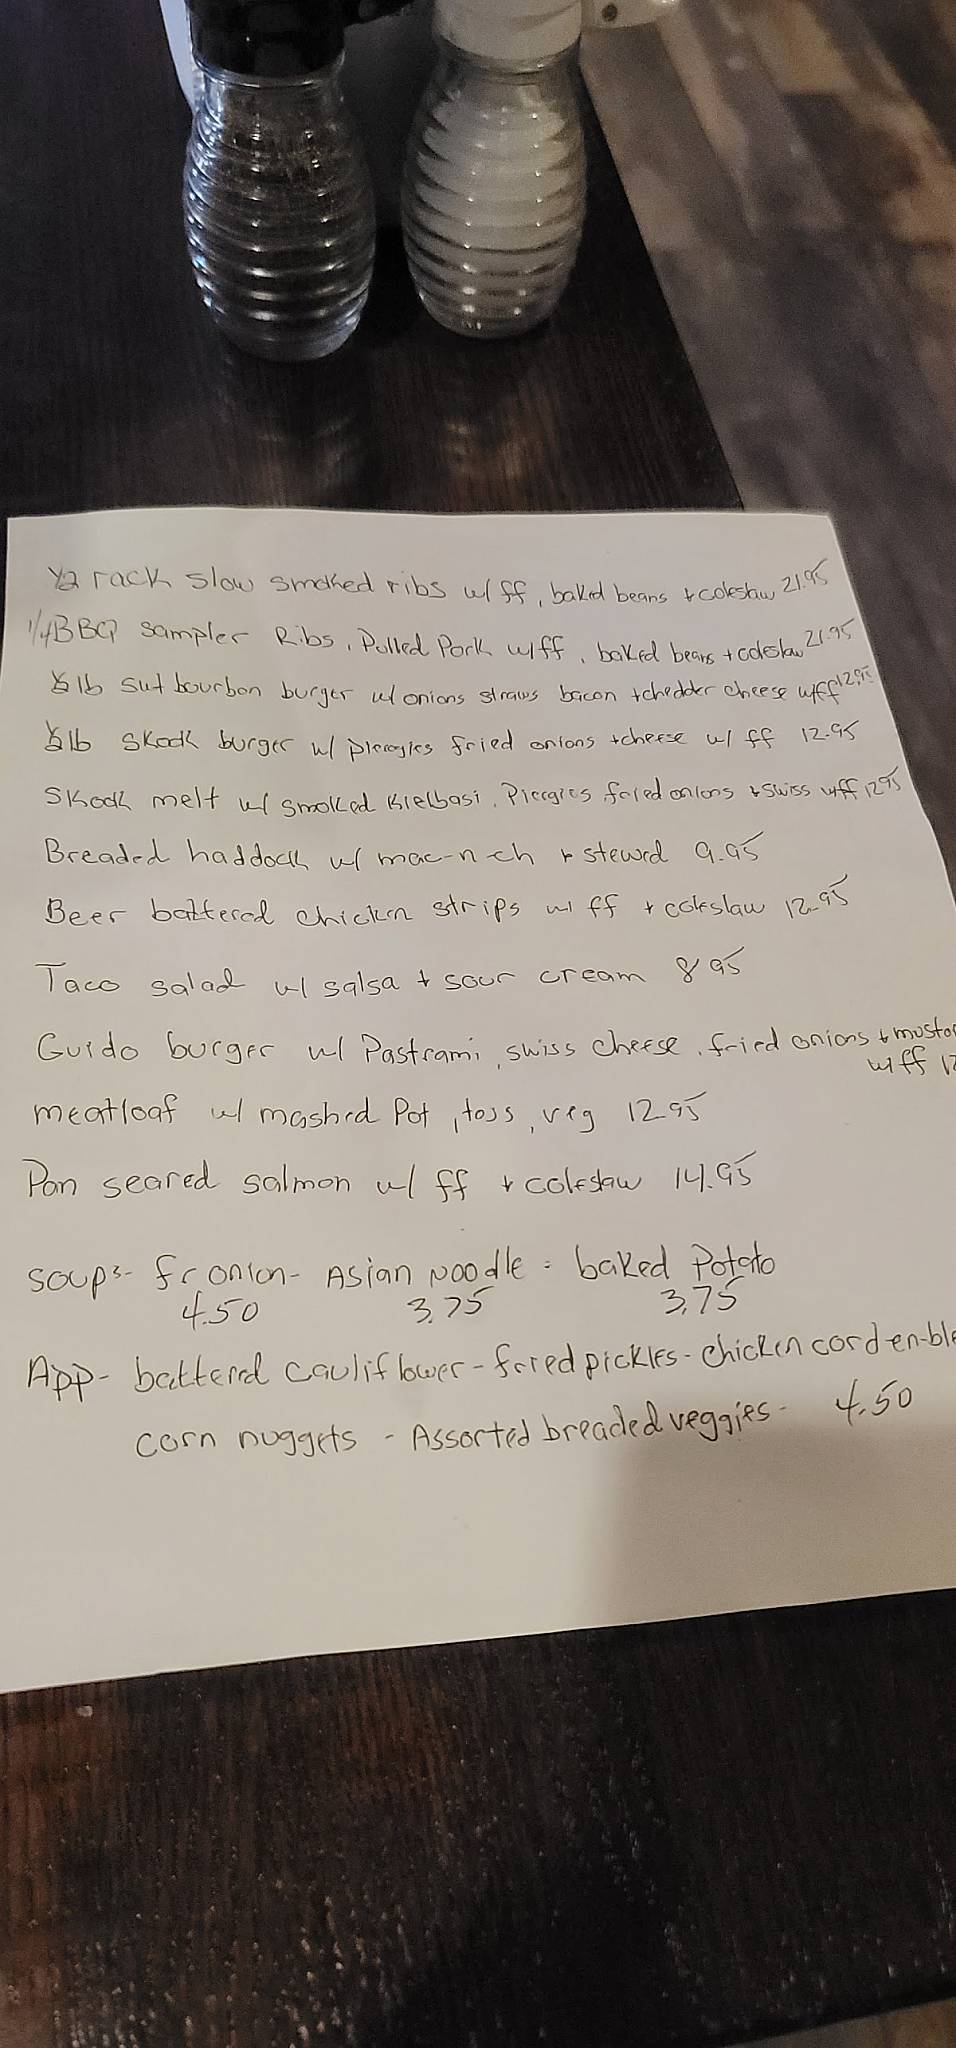 1/2 rack slow smoked ribs w/ ff, baked beans + coleslaw 21.95
1/4 BBQ sampler Ribs, Pulled Pork w/ff, baked beans + coleslaw 21.95
1/2 lb sut bourbon burger w/ onions straws bacon + chedder cheese w/ff 12.95
1/2 lb Skook burger w/ pierogies fried onions + cheese w/ ff 12.95
Skook melt w/ smoked kielbasi, Pierogies fried onions + swiss w/ff 12.95
Breaded haddock w/ mac-n-ch + stewed 9.95
Beer battered chicken strips w/ ff + coleslaw 12.95
Taco salad w/ salsa + sour cream 8.95
Guido burger w/ Pastrami, swiss cheese, fried onions +
w/ff
meatloaf w/ mashed Pot, toss, veg 12.95
Pan seared salmon w/ ff + coleslaw 14.95
soups- fr onion - Asian Noodle - baked Potato
4.50 3.75 3.75
App- battered cauliflower - fried pickles - chicken
corn nuggets - Assorted breaded veggies - 4.50